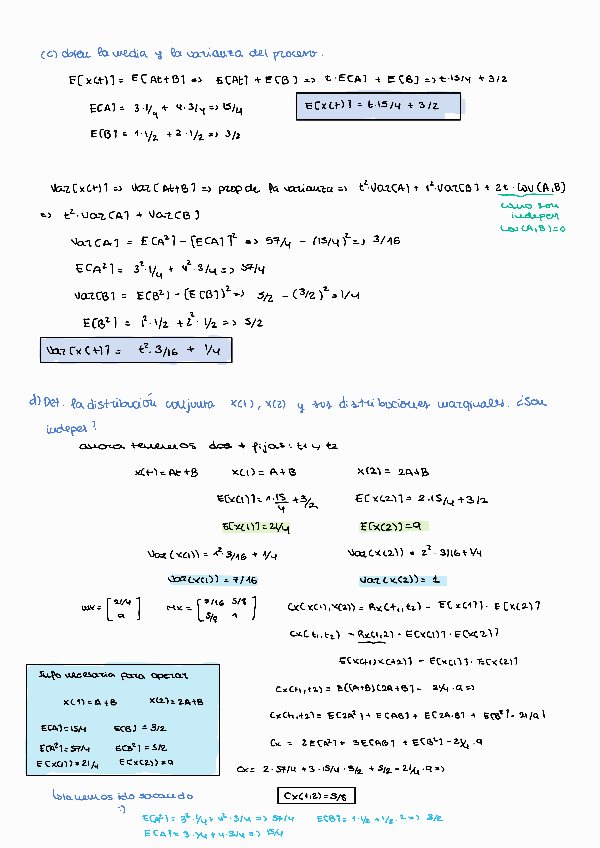 (c) obten la media y la varianza del proceso.
E[X(t)] = E[At+B] => E[At] + E[B] => t·E[A] + E[B] => t·15/4 + 3/2
E[A] = 3·1/4 + 4·3/4 => 15/4
E[X(t)] = t·15/4 + 3/2
E[B] = 1·1/2 + 2·1/2 => 3/2
Var[X(t)] => Var[At+B] => prop de la varianza => t²·Var[A] + 1²·Var[B] + 2t·Cov(A,B)
como son
indepes
Cov(A,B)=0
=> t²·Var[A] + Var[B]
Var[A] = E[A²] - [E[A]]² => 57/4 - (15/4)² => 3/16
E[A²] = 3²·1/4 + 4²·3/4 => 57/4
Var[B] = E[B²] - (E[B])² => 5/2 - (3/2)² = 1/4
E[B²] = 1²·1/2 + 2²·1/2 => 5/2
Var[X(t)] = t²·3/16 + 1/4
d) Det. la distribución conjunta X(1), X(2) y sus distribuciones marginales. ¿Son
indepes?
ahora tenemos dos t fijas: t1 y t2
X(t) = At+B X(1) = A+B X(2) = 2A+B
E[X(1)] = 1·15/4 + 3/2 E[X(2)] = 2·15/4 + 3/2
E[X(1)] = 21/4 E[X(2)] = 9
Var(X(1)) = 1²·3/16 + 1/4 Var(X(2)) = 2²·3/16 + 1/4
Var(X(1)) = 7/16 Var(X(2)) = 1
mx = [21/4 9] Mx = [7/16 5/8 5/8 1] Cx(X(1),X(2)) = Rx(t1,t2) - E[X(1)]·E[X(2)]
Cx(t1,t2) = Rx(1,2) - E[X(1)]·E[X(2)]
E[X(t1)X(t2)] - E[X(1)]·E[X(2)]
Info necesaria para operar
X(1)=A+B X(2)=2A+B
E[A]=15/4 E[B]=3/2
E[A²]=57/4 E[B²]=5/2
E[X(1)]=21/4 E[X(2)]=9
Cx(t1,t2) = E[(A+B)(2A+B)] - 21/4·9 =>
Cx(t1,t2) = E[2A²] + E[AB] + E[2A·B] + E[B²] - 21/4·9
Cx = 2E[A²] + 3E[AB] + E[B²] - 21/4·9
Cx = 2·57/4 + 3·15/4·3/2 + 5/2 - 21/4·9 =>
Cx(1,2) = 5/8
lo hemos ido sacando
:)
E[A²] = 3²·1/4 + 4²·3/4 => 57/4 E[B] = 1·1/2 + 1/2·2 => 3/2
E[A] = 3·1/4 + 4·3/4 => 15/4